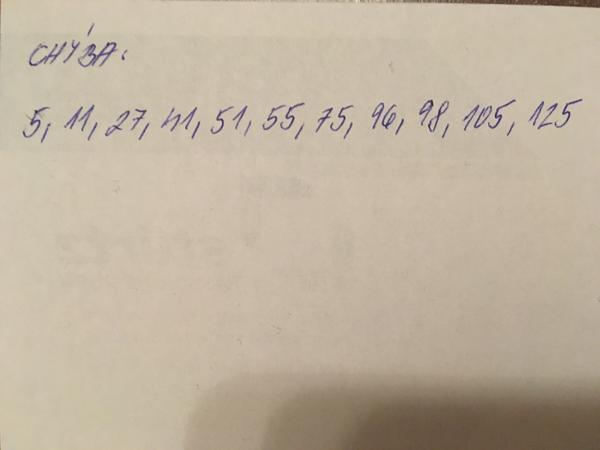 CHÝBA:
5, 11, 27, 41, 51, 55, 75, 96, 98, 105, 125